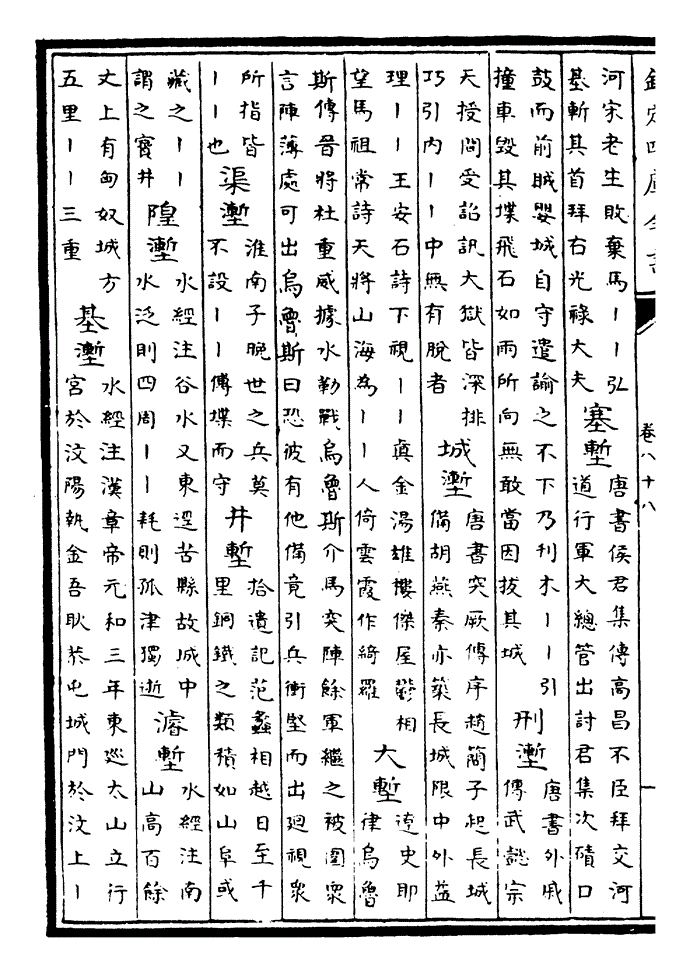 欽定四庫全書
卷八十八
河宋老生敗棄馬丨丨弘
基斬其首拜右光祿大夫
塞塹
唐書侯君集傳高昌不臣拜交河
道行軍大總管出討君集次磧口
鼓而前賊嬰城自守遣諭之不下乃利木丨丨引
撞車毁其堞飛石如雨所向無敢當因拔其城
刑壍
唐書外戚
傳武懿宗
天授間受詔訊大獄皆深排
巧引内丨丨中無有脫者
城壍
唐書突厥傳序趙簡子起長城
備胡燕秦亦築長城限中外益
理丨丨王安石詩下視丨丨真金湯雄樓傑屋鬱相
望馬祖常詩天將山海為丨丨人倚雲霞作綺羅
大塹
遼史耶
律烏魯
斯傳晉將杜重威據水勒戰烏魯斯介馬突陣餘軍繼之被圍衆
言陣薄處可出烏魯斯曰恐彼有他備竟引兵衝堅而出廻視衆
所指皆
丨丨也
渠壍
淮南子晚世之兵莫
不設丨丨傅堞而守
井塹
拾遺記范蠡相越日至千
里銅鐵之類積如山阜或
藏之丨丨
謂之寳井
隍壍
水經注谷水又東逕苦縣故城中
水泛則四周丨丨耗則孤津獨逝
濬塹
水經注南
山高百餘
丈上有匈奴城方
五里丨丨三重
基壍
水經注漢章帝元和三年東巡太山立行
宮於汶陽執金吾耿恭屯城門於汶上丨